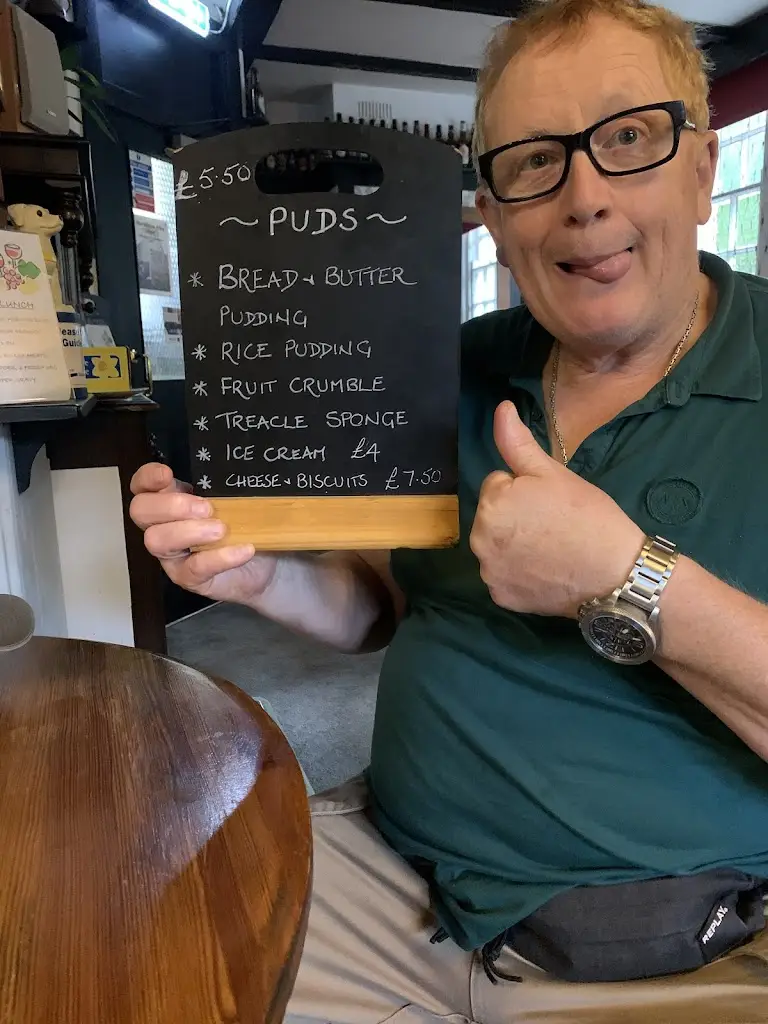 £5.50
~ PUDS ~
* BREAD & BUTTER
PUDDING
* RICE PUDDING
* FRUIT CRUMBLE
* TREACLE SPONGE
* ICE CREAM £4
* CHEESE & BISCUITS £7.50
LUNCH
Guide
REPLAY